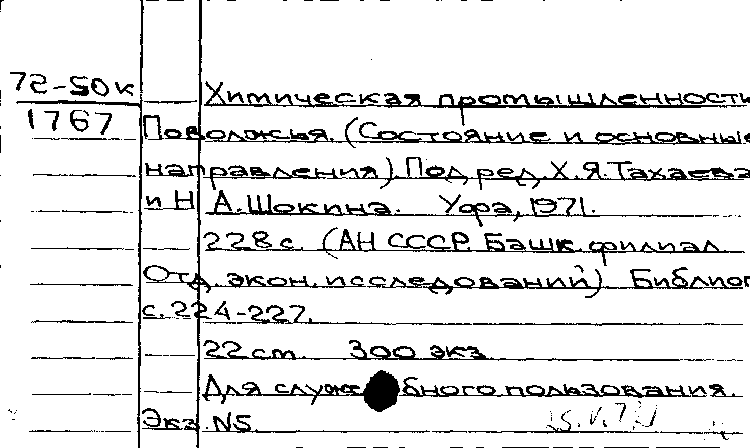 72-50к
1767
Химическая промышленность
Поволжья. (Состояние и основные
направления). Под ред. Х.Я.Тахаева
и Н.А.Шокина. Уфа, 1971.
228с. (АН СССР. Башк. филиал
Отд. экон. исследований). Библиог
с.224-227.
22 cm. 300 экз.
Для служебного пользования.
Экз. N5.